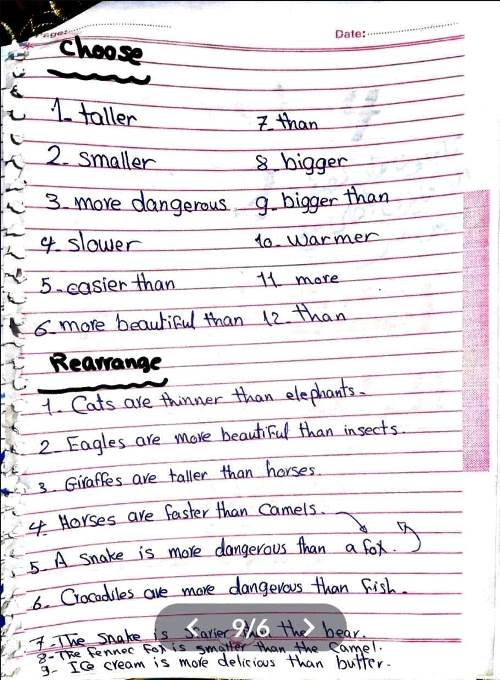 Date:
Choose
1- taller
2- smaller
3- more dangerous
4- slower
5- easier than
6- more beautiful than
7- than
8- bigger
9- bigger than
10- warmer
11- more
12- than
Rearrange
1- Cats are thinner than elephants.
2- Eagles are more beautiful than insects.
3- Giraffes are taller than horses.
4- Horses are faster than Camels.
5- A snake is more dangerous than a fox.
6- Crocodiles are more dangerous than fish.
9/6
7- The snake is scarier than the bear.
8- The fennec fox is smaller than the camel.
9- Ice cream is more delicious than butter.